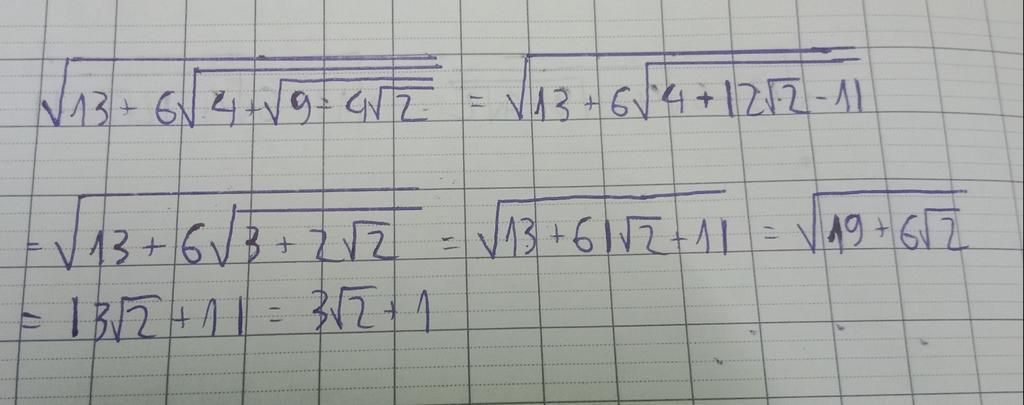 √(13 + 6√(4 + √(9 - 4√2))) = √(13 + 6√(4 + |2√2 - 1|))
= √(13 + 6√(3 + 2√2)) = √(13 + 6|√2 + 1|) = √(19 + 6√2)
= |3√2 + 1| = 3√2 + 1